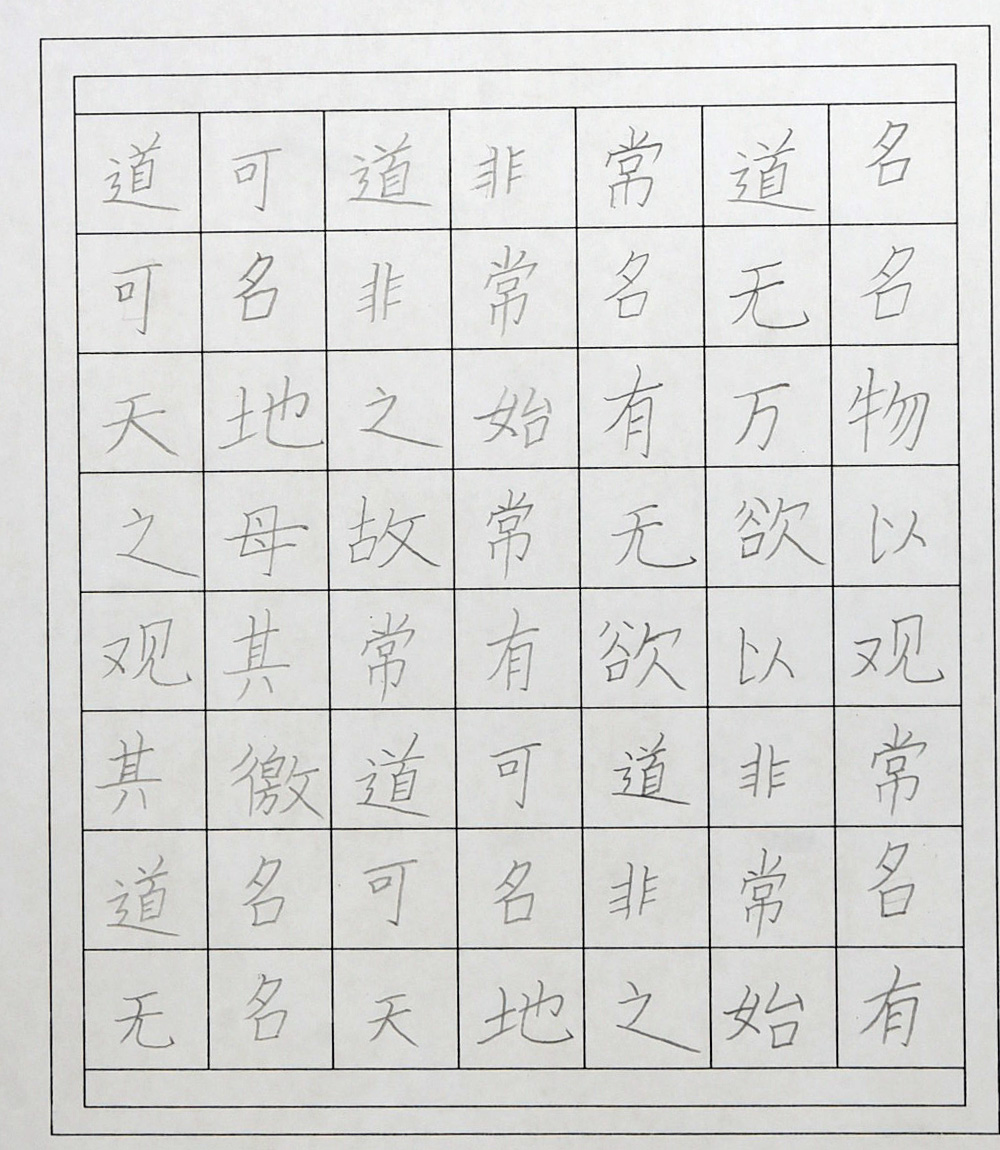 道可道非常道名
可名非常名无名
天地之始有万物
之母故常无欲以
观其常有欲以观
其徼道可道非常
道名可名非常名
无名天地之始有